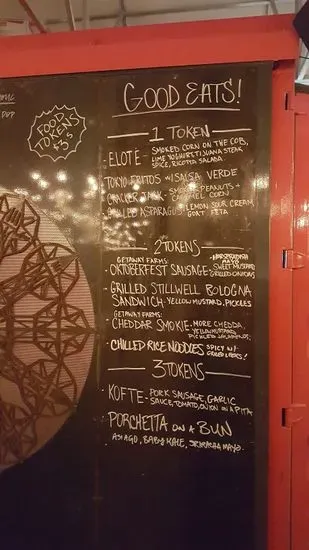 GOOD EATS!
FOOD
TOKENS
$3.5
POP
1 TOKEN
· ELOTE - SMOKED CORN ON THE COB,
LIME YOGHURT, TIJUANA STEAK
SPICE, RICOTTA SALADA
TOKYO FRITTOS W/SALSA VERDE
CRACKER JACK - SMOKED PEANUTS +
CARAMEL CORN
GRILLED ASPARAGUS - LEMON SOUR CREAM,
GOAT FETA
2 TOKENS
GETAWAY FARMS:
· OKTOBERFEST SAUSAGE - HORSERADISH
MAYO,
SWEET MUSTARD
GRILLED ONIONS
· GRILLED STILLWELL BOLOGNA
SANDWICH - YELLOW MUSTARD, PICKLES
GETAWAY FARMS:
· CHEDDAR SMOKIE - MORE CHEDDA,
YELLOW MUSTARD,
PICKLED JALAPENOS
· CHILLED RICE NOODLES SPICY W/
3 TOKENS
· KOFTE - PORK SAUSAGE, GARLIC
SAUCE, TOMATO, ONION ON A PITA
· PORCHETTA ON A BUN
ASIAGO, BABY KALE, SRIRACHA MAYO.